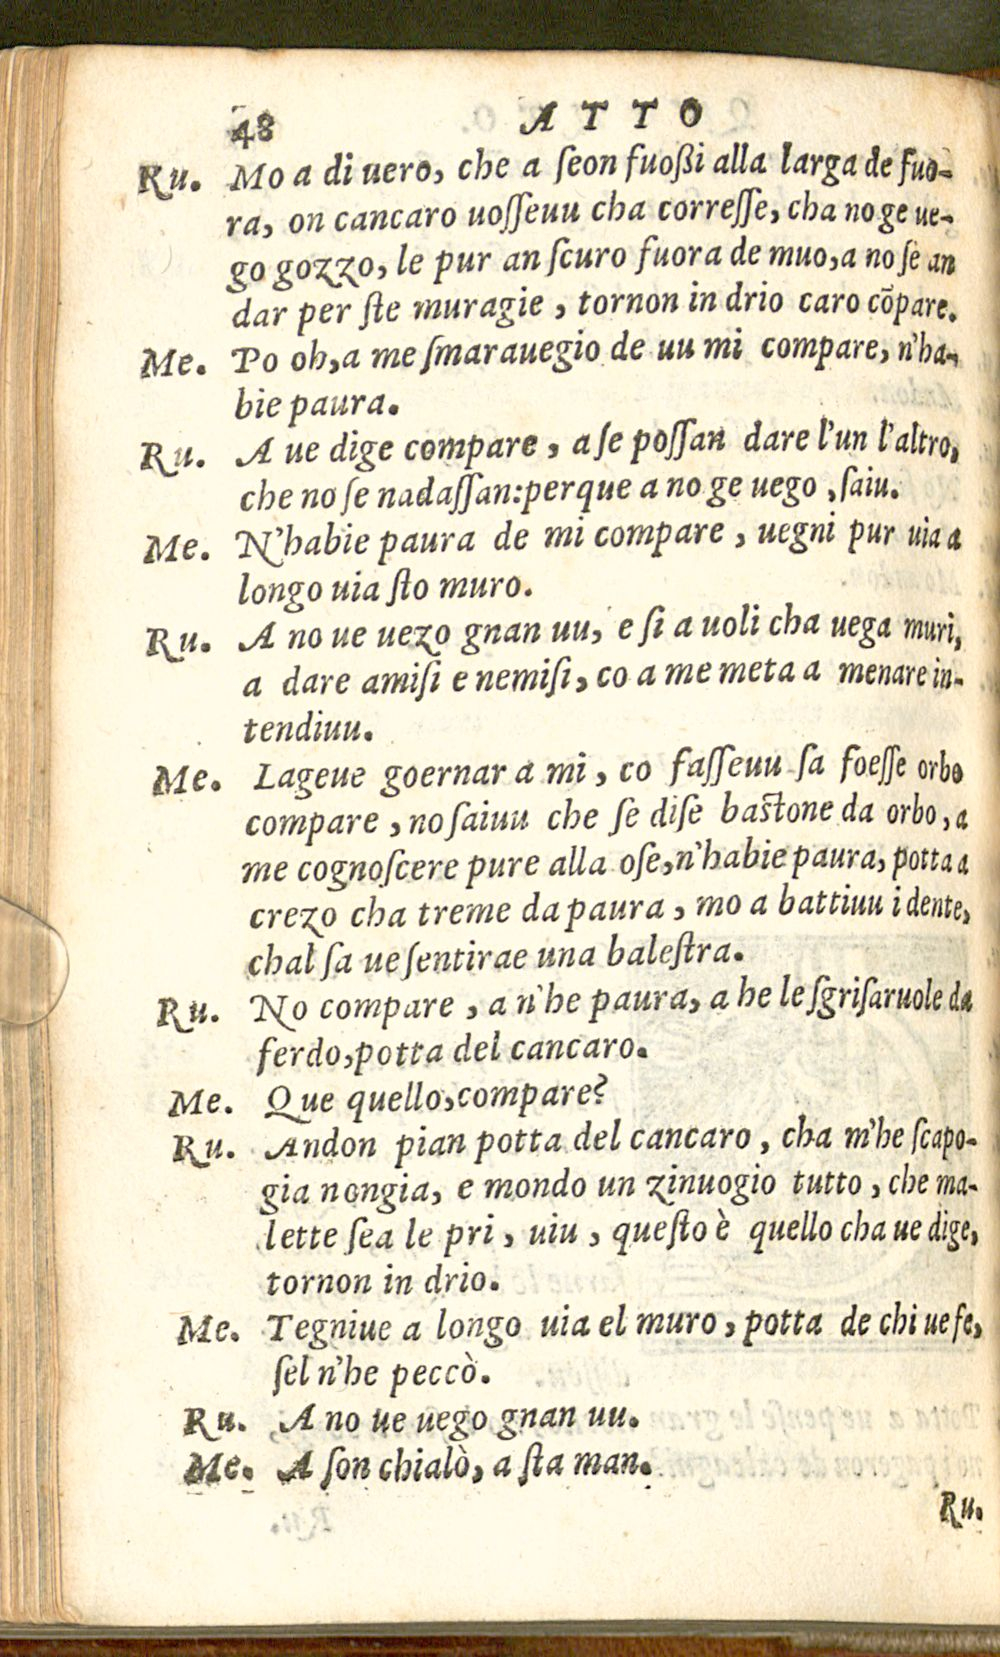 48 ATTO
Ru. Mo a di uero, che a ſeon fuoßi alla larga de fuo-
ra, on cancaro uoſſeuu cha correſſe, cha no ge ue-
go gozzo, le pur an ſcuro fuora de muo, a no ſè an
dar per ſte muragie, tornon in drio caro cõpare.
Me. Po oh, a me ſmarauegio de uu mi compare, n'ha-
bie paura.
Ru. A ue dige compare, a ſe poſſan dare l'un l'altro,
che no ſe nadaſſan: perque a no ge uego, ſaiu.
Me. N'habie paura de mi compare, uegni pur uia a
longo uia ſto muro.
Ru. A no ue uezo gnan uu, e ſi a uoli cha uega muri,
a dare amiſi e nemiſi, co a me meta a menare in-
tendiuu.
Me. Lageue goernar a mi, co faſſeuu ſa foeſſe orbo
compare, no ſaiuu che ſe diſe baſtone da orbo, a
me cognoſcere pure alla oſe, n'habie paura, potta a
crezo cha treme da paura, mo a battiuu i dente,
chal ſa ue ſentirae una baleſtra.
Ru. No compare, a n'he paura, a he le ſgriſaruole da
ferdo, potta del cancaro.
Me. Que quello, compare?
Ru. Andon pian potta del cancaro, cha m'he ſcapo-
gia nongia, e mondo un zinuogio tutto, che ma-
lette ſea le pri, uiu, queſto è quello cha ue dige,
tornon in drio.
Me. Tegniue a longo uia el muro, potta de chi ue fe,
ſel n'he peccò.
Ru. A no ue uego gnan uu.
Me. A ſon chialò, a ſta man.
Ru.